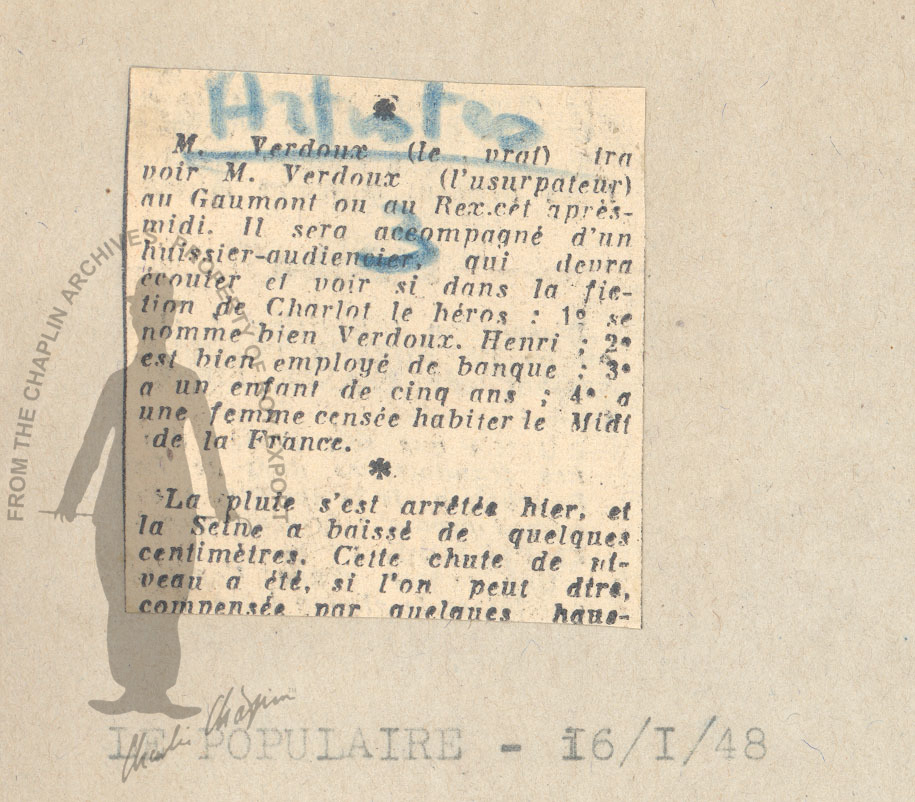 Artistes
*
M. Verdoux (le vrai) ira
voir M. Verdoux (l'usurpateur)
au Gaumont ou au Rex.cet après-
midi. Il sera accompagné d'un
huissier-audiencier, qui devra
écouter et voir si dans la fic-
tion de Charlot le héros : 1° se
nomme bien Verdoux. Henri ; 2°
est bien employé de banque ; 3°
a un enfant de cinq ans ; 4° a
une femme censée habiter le Midi
de la France.
*
La pluie s'est arrêtée hier, et
la Seine a baissé de quelques
centimètres. Cette chute de ni-
veau a été, si l'on peut dire,
compensée par quelques haus-
3
FROM THE CHAPLIN ARCHIVES. PROPERTY OF ROY EXPORT
Charlie Chaplin
LE POPULAIRE - 16/I/48